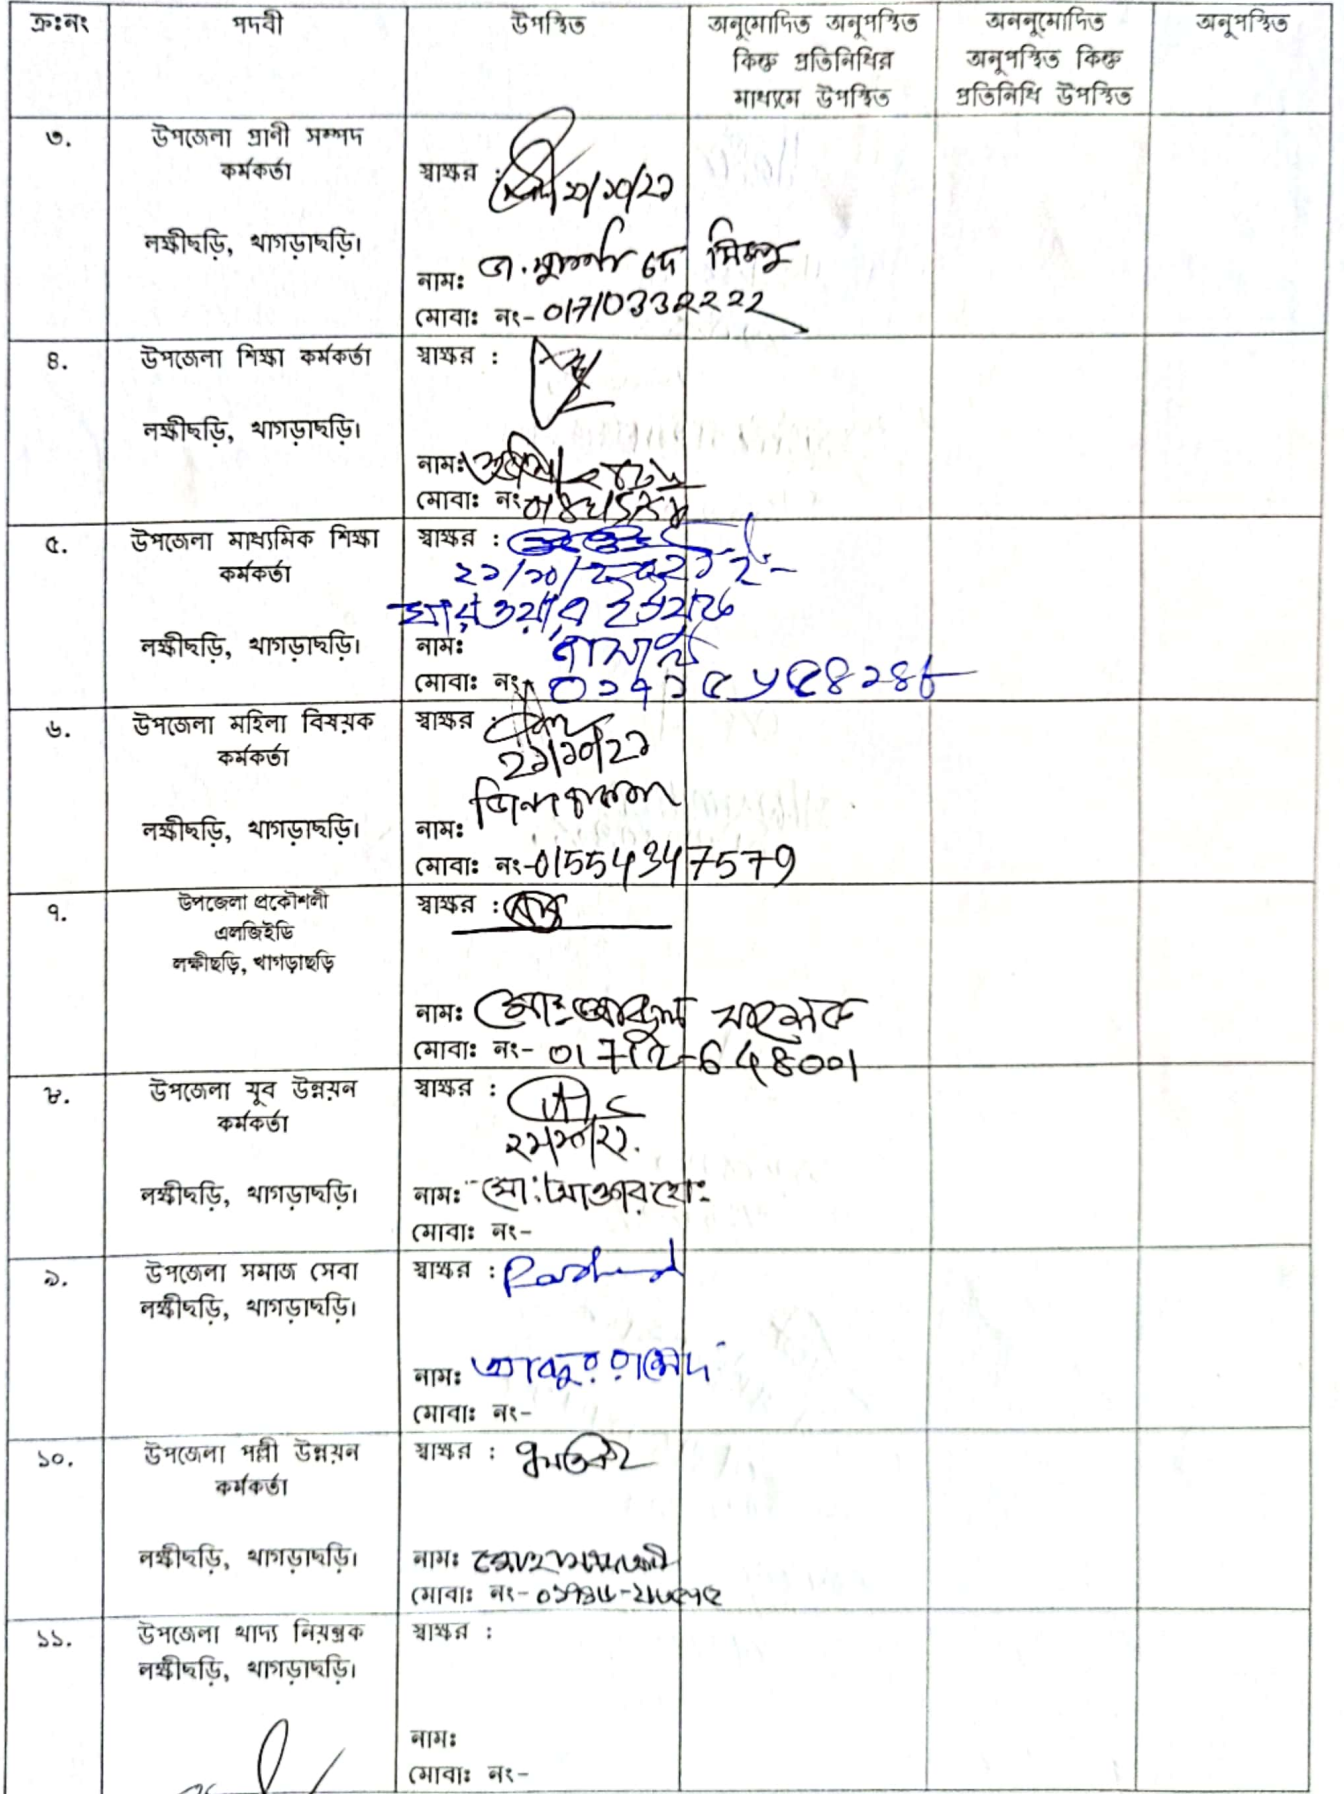 ক্রঃনং পদবী উপস্থিত অনুমোদিত অনুপস্থিত কিন্তু প্রতিনিধির মাধ্যমে উপস্থিত অননুমোদিত অনুপস্থিত কিন্তু প্রতিনিধি উপস্থিত অনুপস্থিত
৩. উপজেলা প্রাণী সম্পদ
কর্মকর্তা
লক্ষীছড়ি, খাগড়াছড়ি।
স্বাক্ষর : ২১/১০/২১
নাম:
মোবাঃ নং- 01710332222
৪. উপজেলা শিক্ষা কর্মকর্তা
লক্ষীছড়ি, খাগড়াছড়ি।
স্বাক্ষর :
নাম:
মোবাঃ নং
৫. উপজেলা মাধ্যমিক শিক্ষা
কর্মকর্তা
লক্ষীছড়ি, খাগড়াছড়ি।
স্বাক্ষর :
২১/১০/২০২১
নাম:
মোবাঃ নং
৬. উপজেলা মহিলা বিষয়ক
কর্মকর্তা
লক্ষীছড়ি, খাগড়াছড়ি।
স্বাক্ষর :
২১/১০/২১
নাম:
মোবাঃ নং-01554347579
৭. উপজেলা প্রকৌশলী
এলজিইডি
লক্ষীছড়ি, খাগড়াছড়ি
স্বাক্ষর :
নাম: মোঃ আব্দুল খালেক
মোবাঃ নং- 01712-648001
৮. উপজেলা যুব উন্নয়ন
কর্মকর্তা
লক্ষীছড়ি, খাগড়াছড়ি।
স্বাক্ষর :
২১/১০/২১.
নাম: মো:
মোবাঃ নং-
৯. উপজেলা সমাজ সেবা
লক্ষীছড়ি, খাগড়াছড়ি।
স্বাক্ষর : Rashed
নাম:
মোবাঃ নং-
১০. উপজেলা পল্লী উন্নয়ন
কর্মকর্তা
লক্ষীছড়ি, খাগড়াছড়ি।
স্বাক্ষর :
নাম:
মোবাঃ নং-
১১. উপজেলা খাদ্য নিয়ন্ত্রক
লক্ষীছড়ি, খাগড়াছড়ি।
স্বাক্ষর :
নাম:
মোবাঃ নং-